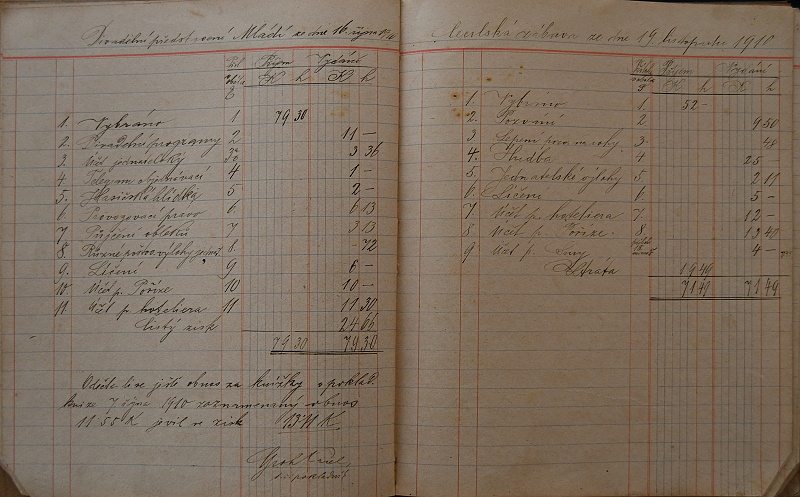 Divadelní představení Mládí ze dne 16. října 1910
Příjem Vydání
K h K h
1. Vybráno 1 79 30
2. Divadelní programy 2 11 —
3. Účet jednatelský 3 36
4. Telegram 4 1 —
5. Hasičská hlídka 5 2 —
6. Provozovací právo 6. 6 13
7. Půjčení obleků 7 3 13
8. Různé výlohy 8. — 72
9. Líčení 9 6 —
10. Účet p. Poříze 10 10 —
11. Účet p. hoteliera 11 11 30
čistý zisk 24 66
79 30 79 30
Odečte-li se ještě obnos za knížky v poklad.
knize 7. října 1910 zaznamenaný obnos
11 55 K jeví se zisk 13·11 K
zábava ze dne 19 listopadu 1910
Příjem Vydání
K h K h
1. Vybráno 1. 52 —
2. 2. 9 50
3. Lepení na rohy 3. 48
4. Hudba 4 25 —
5. Jednatelské výlohy 5 2 11
6. Líčení 6. 5 —
7. Účet p. hoteliera 7. 12 —
8 Účet p. Poříze 8. 13 40
9 Účet p. 4 —
Ztráta 19 49
71 49 71 49